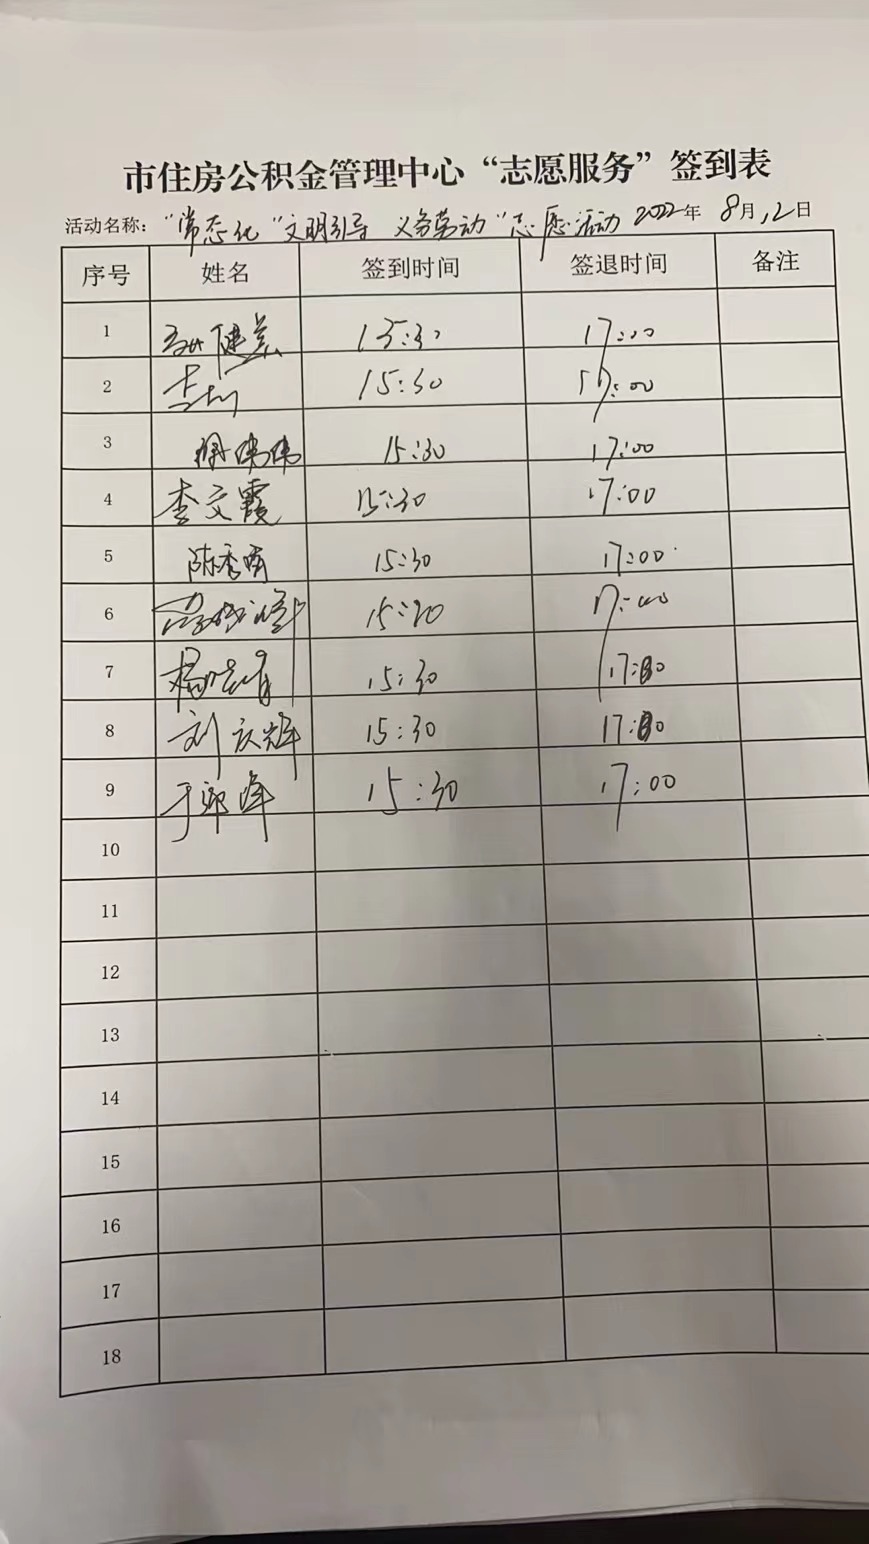 市住房公积金管理中心“志愿服务”签到表
活动名称：“常态化“文明引导 义务劳动”志愿活动 2022年 8月12日
序号 姓名 签到时间 签退时间 备注
1 15:30 17:00
2 15:30 17:00
3 徐伟伟 15:30 17:00
4 李文霞 15:30 17:00
5 陈秀 15:30 17:00
6 15:30 17:00
7 杨 15:30 17:00
8 刘庆辉 15:30 17:00
9 于 峰 15:30 17:00
10
11
12
13
14
15
16
17
18